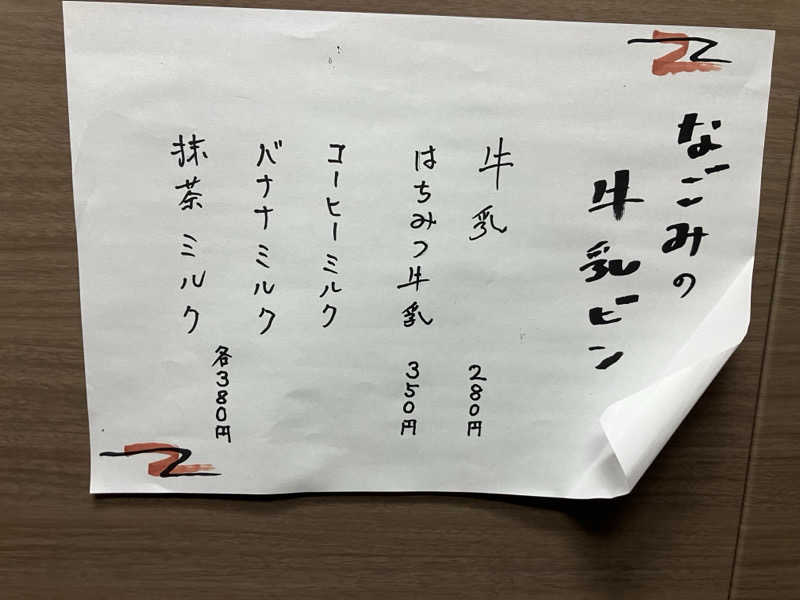 なごみの
牛乳ビン
牛乳 280円
はちみつ牛乳 350円
コーヒーミルク
バナナミルク
抹茶ミルク
各380円